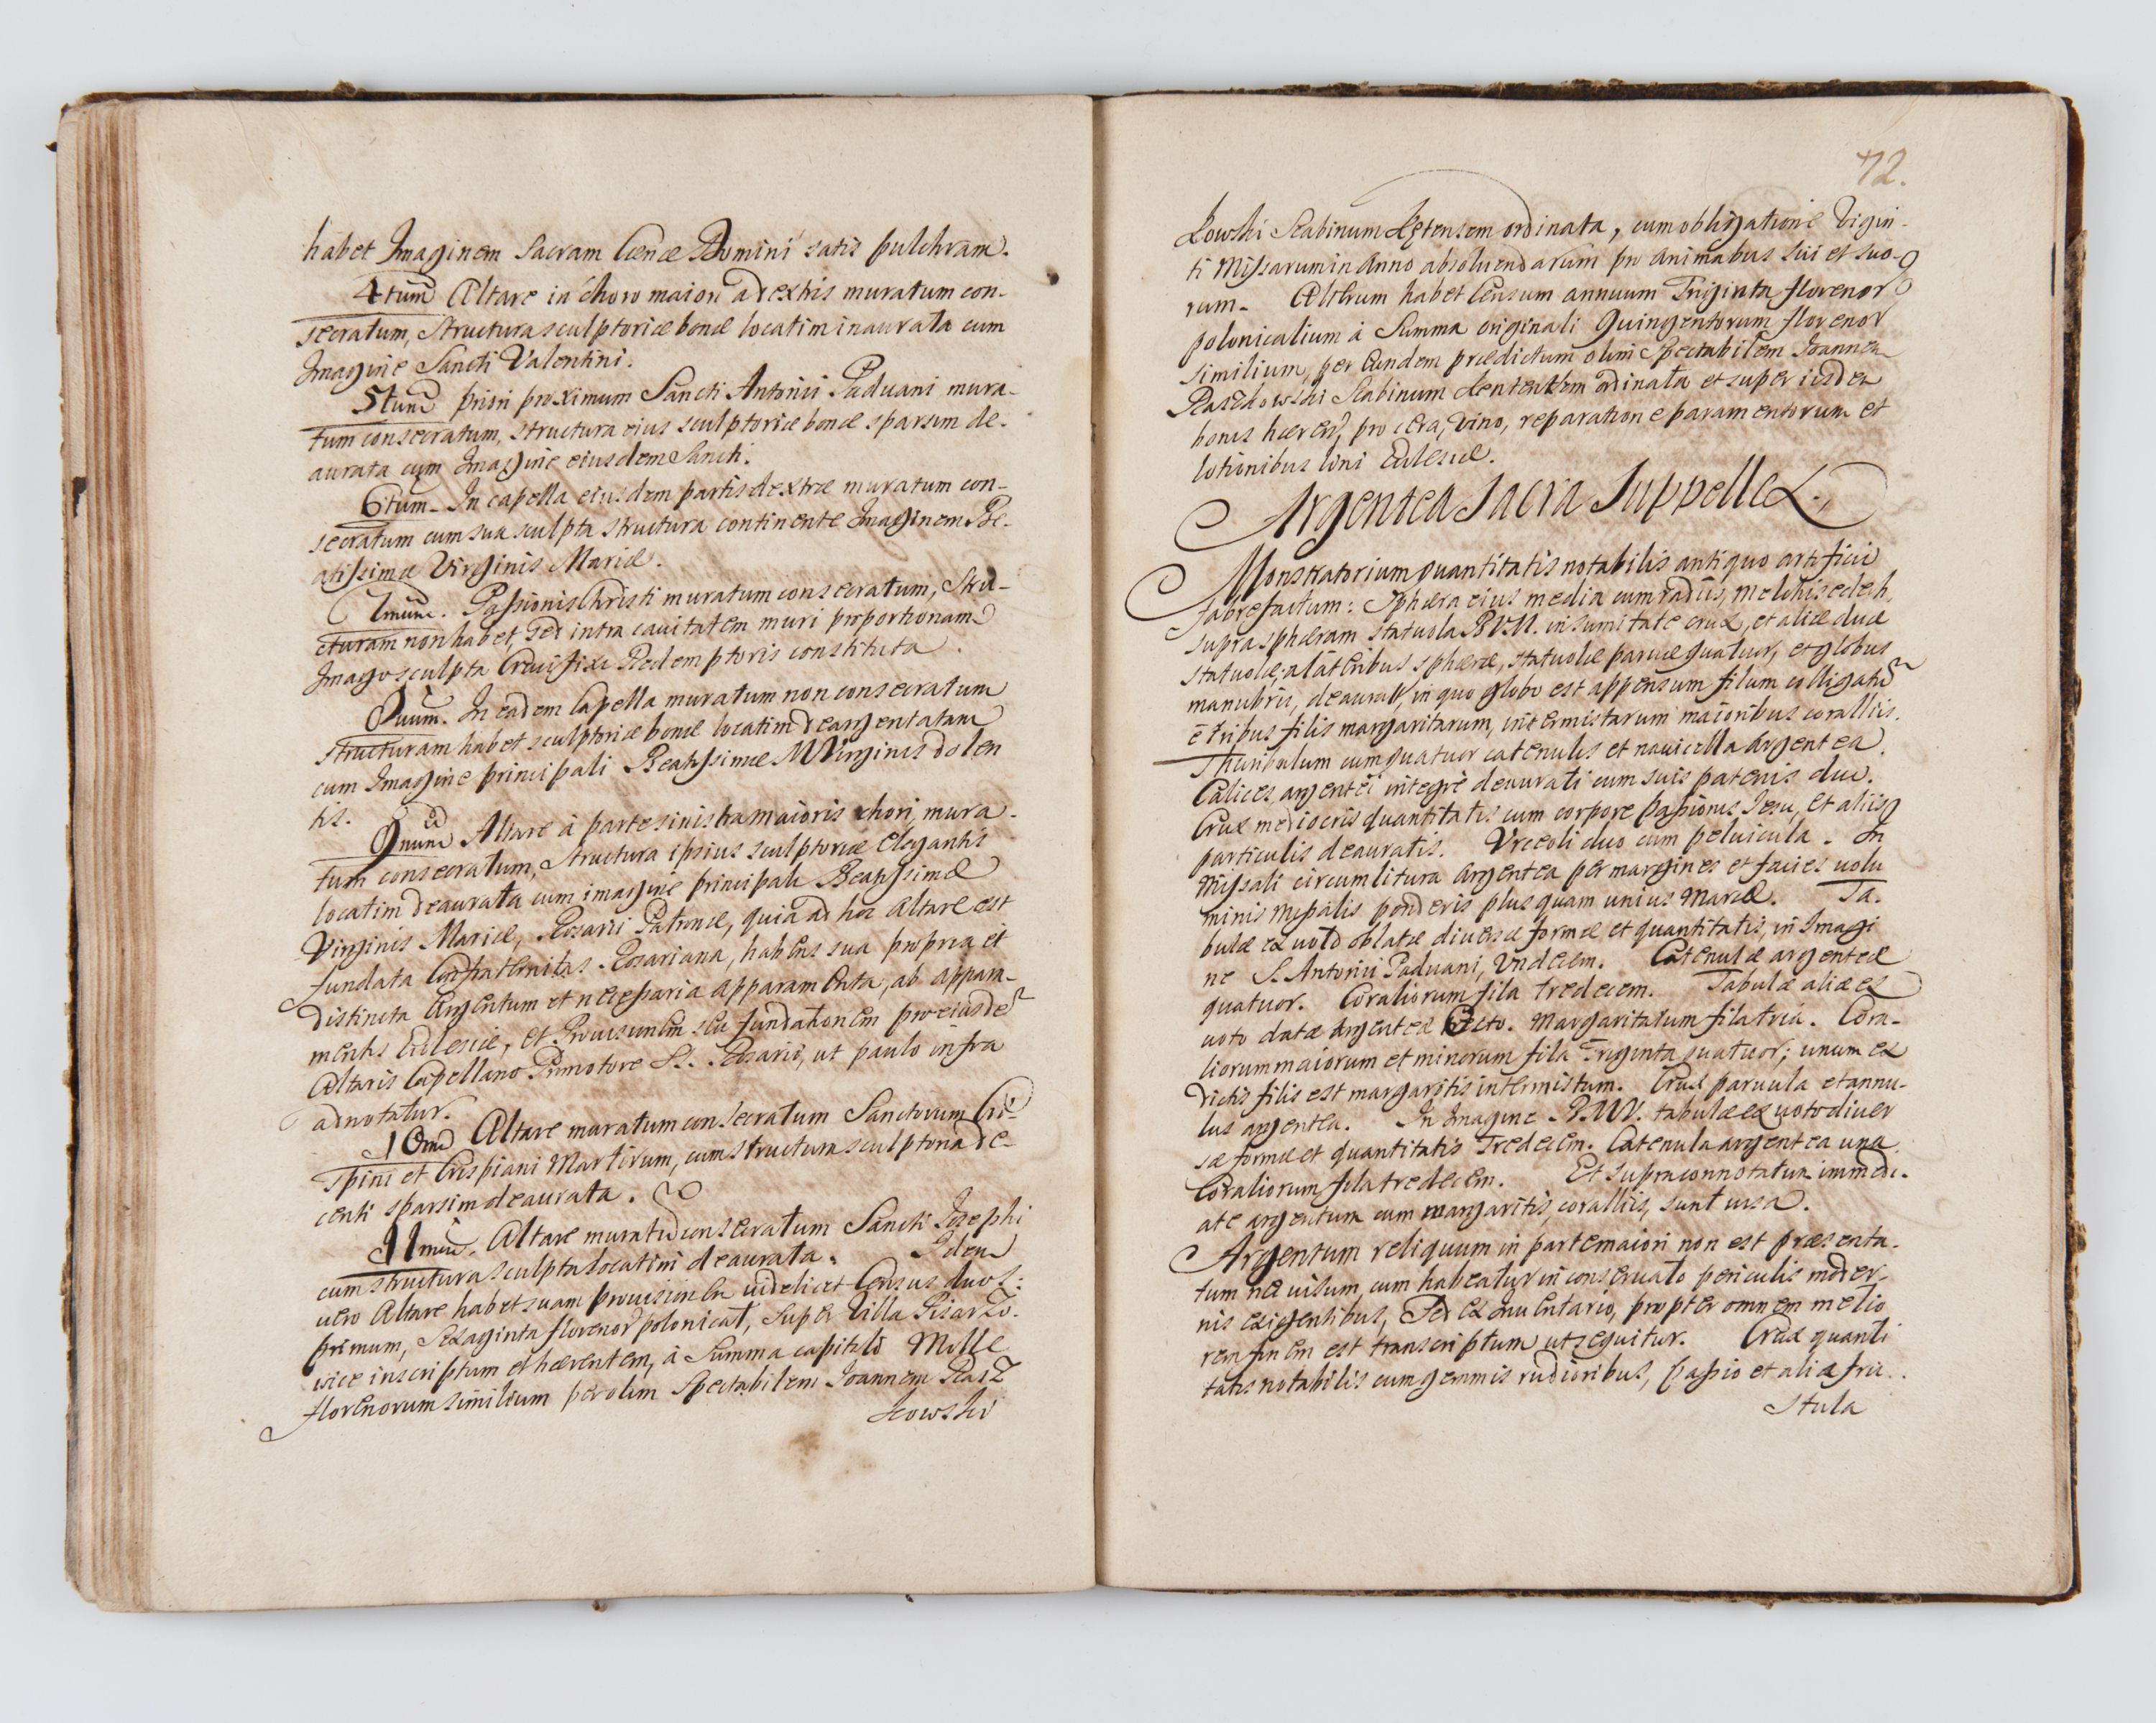 habet Imaginem Sacram Cœnæ Domini satis pulchram.
4tum Altare in choro maiori a dextris muratum con-
secratum, structura sculptoriæ bonæ locatim inaurata cum
Imagine Sancti Valentini.
5tum priori proximum Sancti Antonii Paduani mura-
tum consecratum, structura eius sculptoriæ bonæ sparsim de-
aurata cum Imagine eiusdem Sancti.
6tum. In capella eiusdem partis dextræ muratum con-
secratum cum sua sculpta structura continente Imaginem Be-
atissimæ Virginis Mariæ.
7mum. Passionis Christi muratum consecratum, Stru-
cturam non habet, sed intra cauitatem muri proportionam
Imago sculpta Crucifixi Redemptoris constituta.
8uum. In eadem Capella muratum non consecratum
structuram habet sculptoriæ bonæ locatim deargentatam
cum Imagine principali Beatissimæ M Virginis dolen
tis.
9num Altare à parte sinistra maioris chori, mura-
tum consecratum, structura ipsius sculptoriæ elegantis
locatim deaurata cum imagine principali Beatissimæ
Virginis Mariæ, Rosarii Patronæ, quia ad hoc Altare est
fundata Confraternitas Rosariana, habens sua propria et
distincta Argentum et necessaria apparamenta, ab appara-
mentis Ecclesiæ, et Prouisionem seu fundationem pro eiusdẽ
Altaris Capellano Promotore S. Rosarii, ut paulo infra
adnotatur.
10mũ Altare muratum consecratum Sanctorum Cri-
spini et Crispiani Martirum, cum structura sculptoria de-
centi sparsim deaurata.
11mũ. Altare muratũ consecratum Sancti Josephi
cum structura sculpta locatim deaurata. Idem
uero Altare habet suam prouisionem uidelicet Census duos:
primum, sexaginta florenor polonical, super Villa Pisarzo-
wice inscriptum et hærentem, à Summa capitali Mille
florenorum similium per olim Spectabilem Joannem Rasz
kowski
72.
kowski Scabinum Kętensem ordinata, cum obligatione Vigin-
ti Missarum in Anno absoluendarum pro animabus sui et suo-
rum. Alterum habet Censum annuum Triginta florenor
polonicalium à Summa originali Quingentorum florenor
similium, per Eundem prædictum olim Spectabilem Joannem
Raszkowski Scabinum Kentensem ordinata et super iisdem
bonis hæren, pro cera, vino, reparatione paramentorum et
lotionibus lini Ecclesiæ.
Argentea Sacra Suppellex.
Monstratorium quantitatis notabilis antiquo artificio
fabrefactum: Sphæra eius media cum radiis, Melchisedech,
supra sphæram statuola B.V.M. in sumitate crux, et aliæ duæ
statuolæ, a lateribus sphæræ, statuolæ paruæ quatuor, et globus
manubrii, deaurat, in quo globo est appensum filum colligatũ
è tribus filis margaritarum, intermistarum maioribus coralliis.
Thuribulum cum quatuor catenulis et nauicella argentea.
Calices argentei integrè deaurati cum suis patenis duo.
Crux mediocris quantitatis cum corpore passionis Jesu, et aliis
particulis deauratis. Vrceoli duo cum peluicula. In
Missali circumlitura argentea per margines et facies uolu
minis Missalis ponderis plus quam unius Marcæ. Ta-
bulæ ex uoto oblatæ diuersæ formæ et quantitatis, in Imagi
ne S. Antonii Paduani, Vndecim. Catenulæ argenteæ
quatuor. Coraliorum fila tredecem. Tabulæ aliæ ex
uoto datæ argenteæ Octo. Margaritarum fila tria. Cora-
liorum maiorum et minorum fila Triginta quatuor; unum ex
dictis filis est margaritis intermistum. Crux paruula et annu-
lus argentea. In Imagine B.M.V. tabulæ ex uoto diuer
sæ formæ et quantitatis Tredecem. Catenula argentea una
Coraliorum fila tredecem. Et supraconnotatum immedi-
ate argentum cum margaritis, coralliis, sunt uisa.
Argentum reliquum in parte maiori non est præsenta-
tum nec uisum, cum habeatur in conseruato periculis moder-
nis exigentibus, Sed ex Inuentario, propter omnem melio
rem finem est transcriptum ut sequitur. Crux quanti
tatis notabilis cum gemmis rudioribus, Passio et aliæ fru-
stula